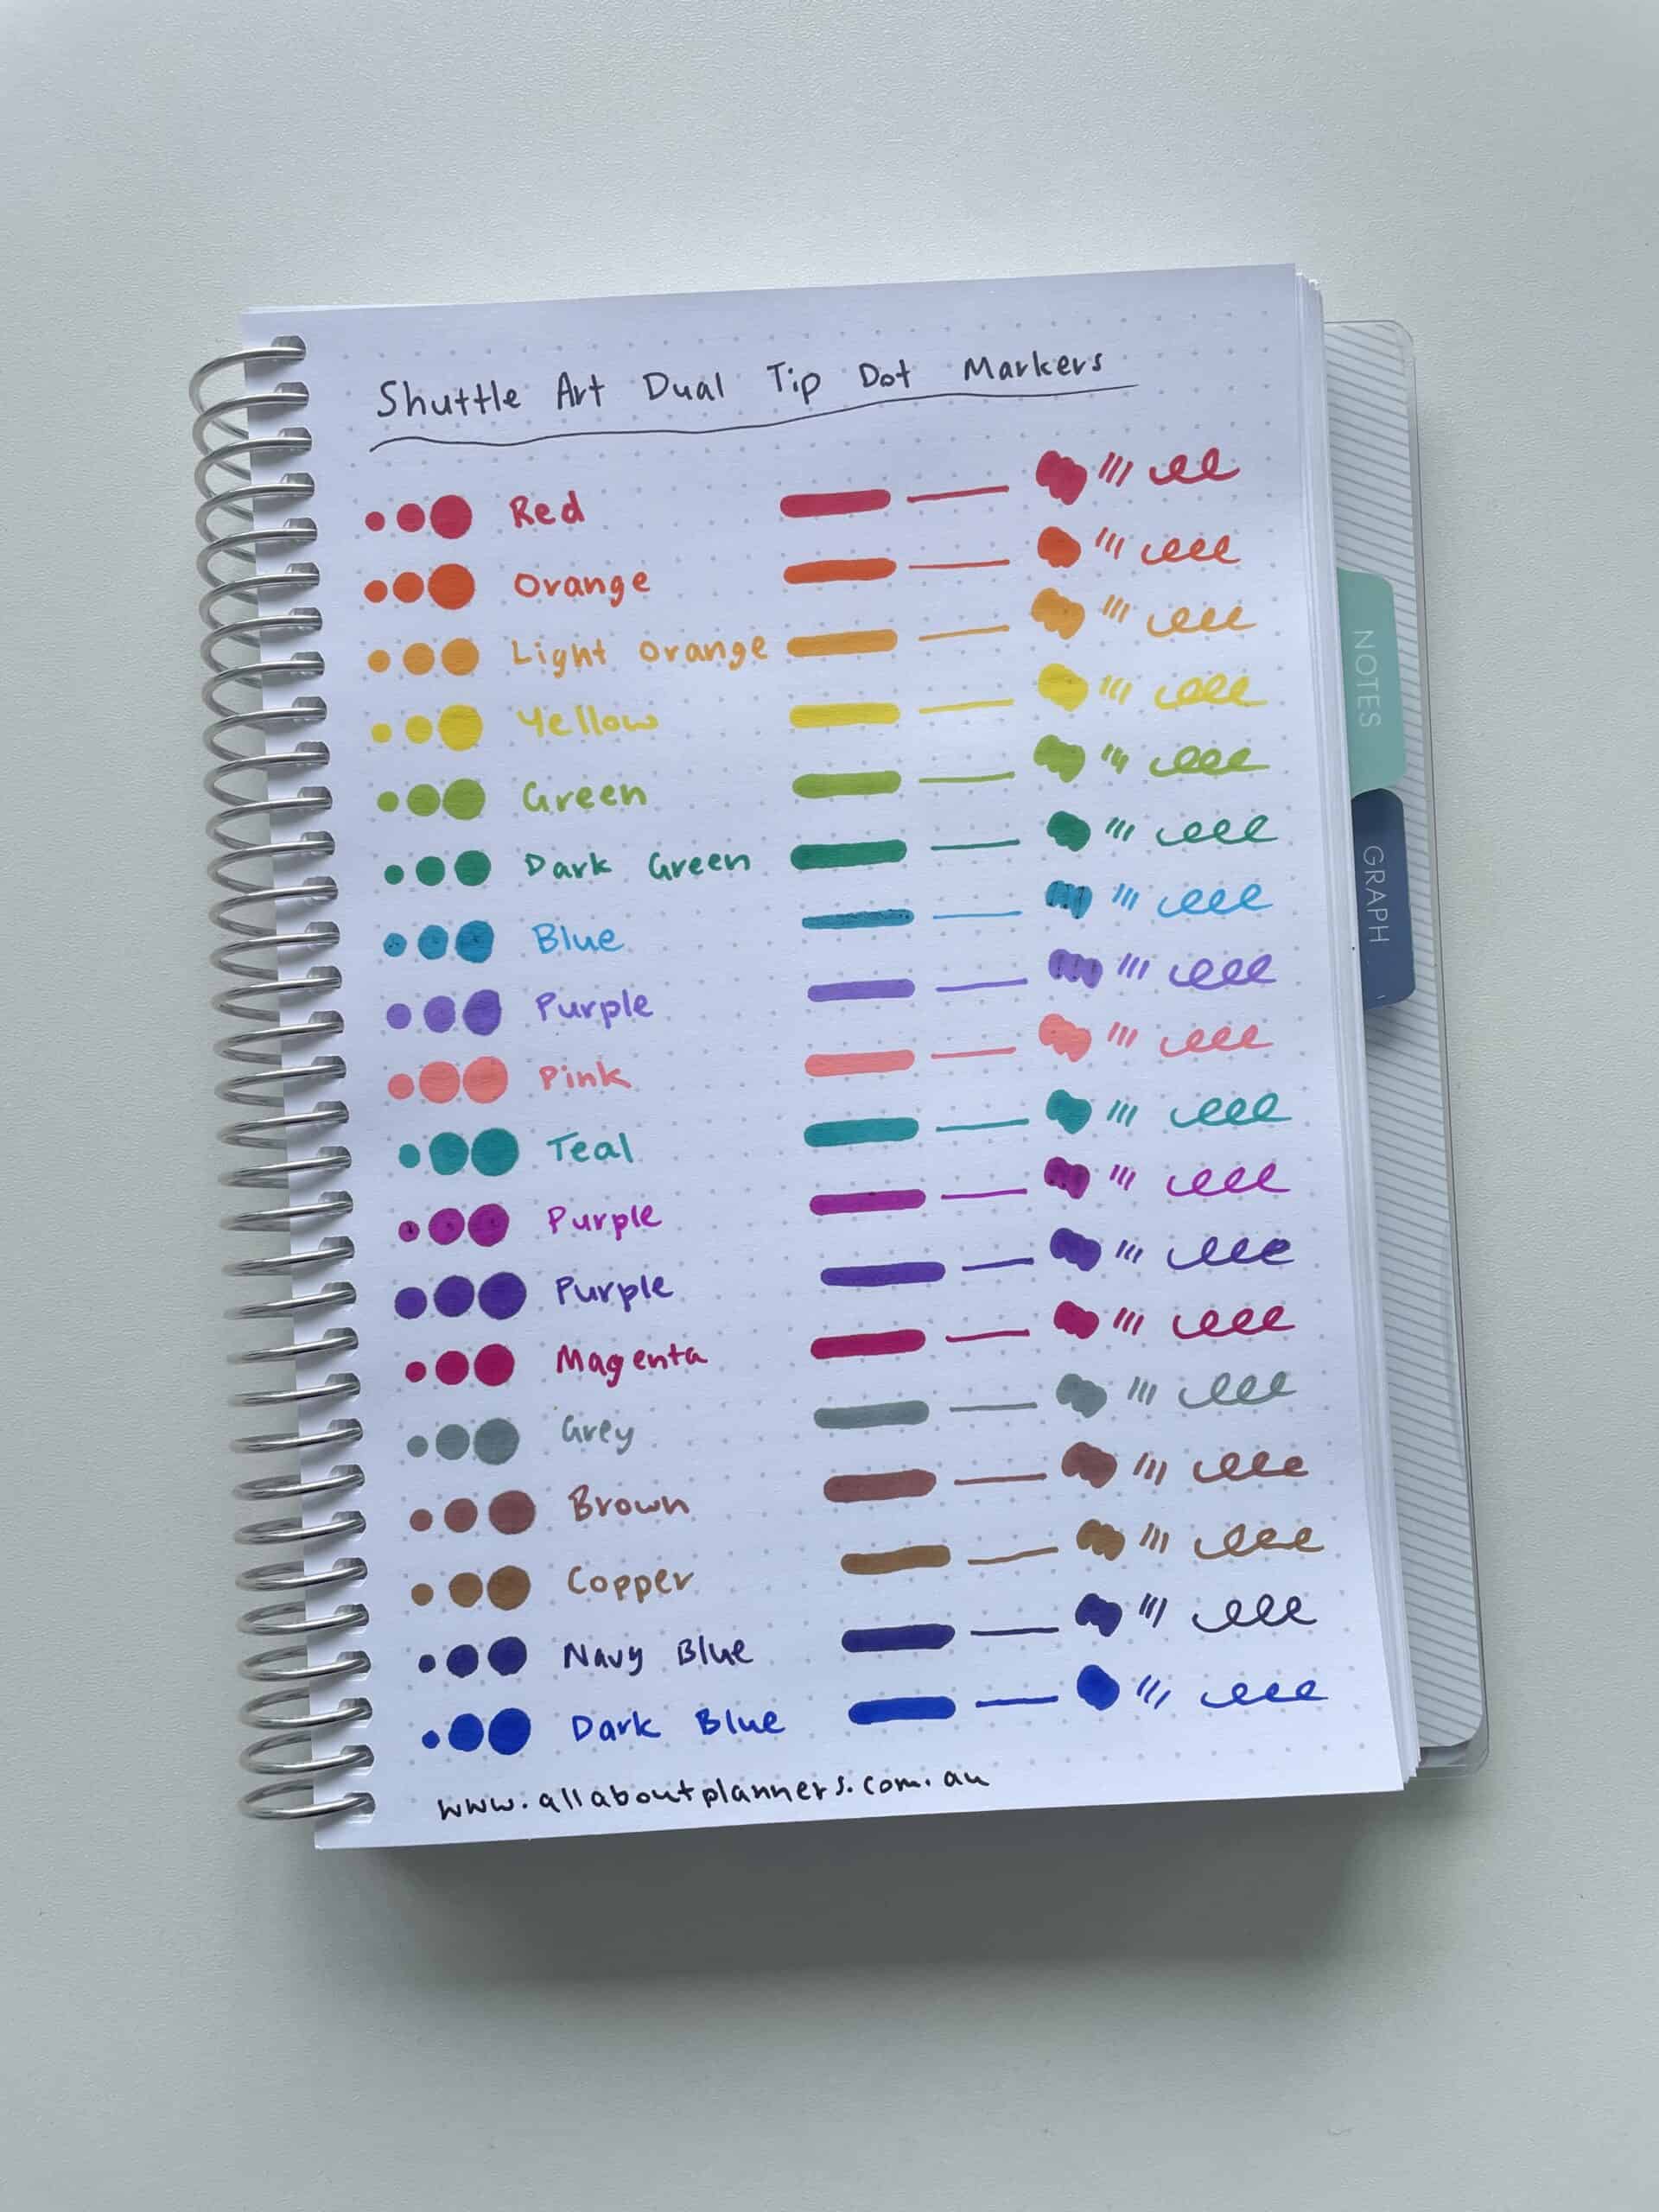 Shuttle Art Dual Tip Dot Markers
Red
Orange
Light Orange
Yellow
Green
Dark Green
Blue
Purple
Pink
Teal
Purple
Purple
Magenta
Grey
Brown
Copper
Navy Blue
Dark Blue
www.allaboutplanners.com.au
NOTES
GRAPH